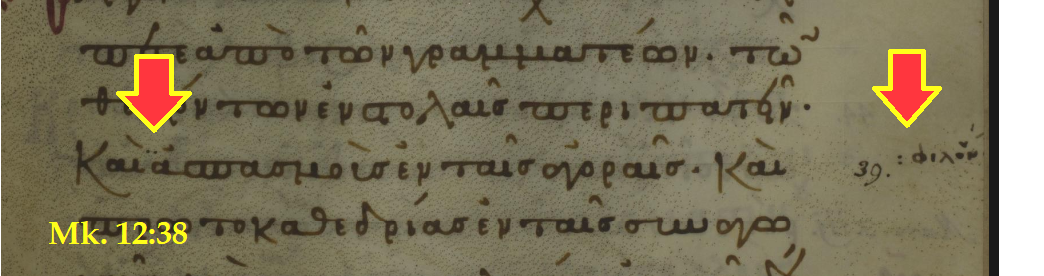 ἀπὸ τῶν γραμματέων. τῶ
των ἐν στολαῖς περιπατεῖν.
Καὶ ἀσπασμοὶς ἐν ταῖς ἀγοραῖς. Καὶ
39. : φιλούν
τοκαθεδρίας ἐν ταῖς συναγω
Mk. 12:38